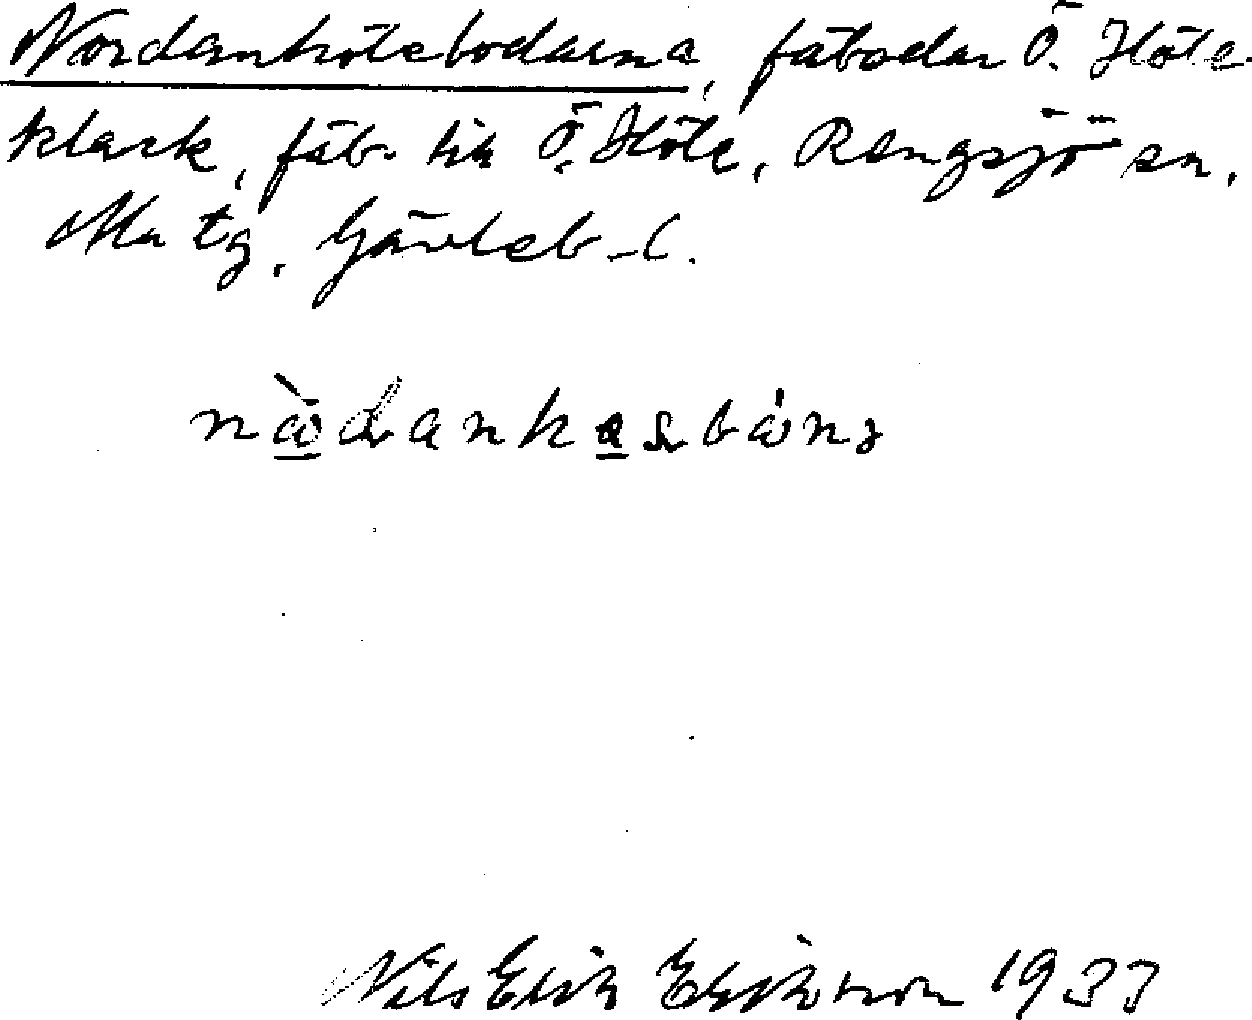 Nordanhötebodarna, fäbodar Ö. Höle-
klack, fäb. till Ö. Höle, Rengsjö sn,
Ala tg, Gävleb. l.
Nils Erik Eriksson 1933